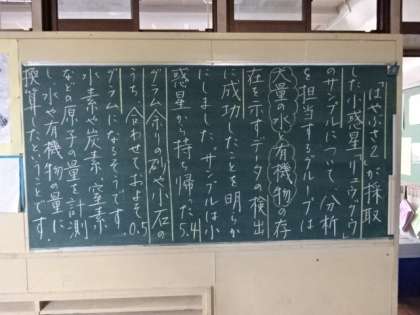 「はやぶさ2」が採取
した小惑星「リュウグウ」
のサンプルについて、分析
を担当するグループは
大量の水と有機物の存
在を示すデータの検出
に成功したことを明らか
にしました。サンプルは小
惑星から持ち帰った5.4
グラム余りの砂や小石の
うち、合わせておよそ0.5
グラムになるそうです。
水素や炭素、窒素
などの原子の量を計測
し、水や有機物の量に
換算したということです。